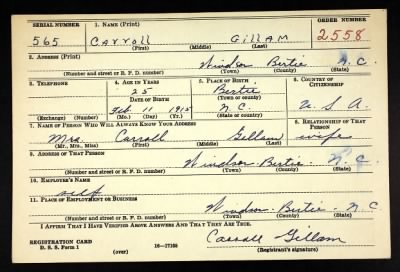 SERIAL NUMBER 1. NAME (Print) ORDER NUMBER
565 Carroll Gillam 2558
(First) (Middle) (Last)
2. ADDRESS (Print)
Windsor Bertie N.C.
(Number and street or R. F. D. number) (Town) (County) (State)
3. TELEPHONE 4. AGE IN YEARS 5. PLACE OF BIRTH 6. COUNTRY OF CITIZENSHIP
25 Bertie
DATE OF BIRTH (Town or county)
Feb. 11 1915 N.C. U.S.A.
(Exchange) (Number) (Mo.) (Day) (Yr.) (State or country)
7. NAME OF PERSON WHO WILL ALWAYS KNOW YOUR ADDRESS 8. RELATIONSHIP OF THAT PERSON
Mrs. Carroll Gillam wife
(Mr., Mrs., Miss) (First) (Middle) (Last)
9. ADDRESS OF THAT PERSON
Windsor Bertie N.C.
(Number and street or R. F. D. number) (Town) (County) (State)
10. EMPLOYER'S NAME
self
11. PLACE OF EMPLOYMENT OR BUSINESS
Windsor Bertie N C
(Number and street or R. F. D. number) (Town) (County) (State)
I AFFIRM THAT I HAVE VERIFIED ABOVE ANSWERS AND THAT THEY ARE TRUE.
Carroll Gillam
REGISTRATION CARD
D. S. S. Form 1 (over) 16—17105 (Registrant's signature)